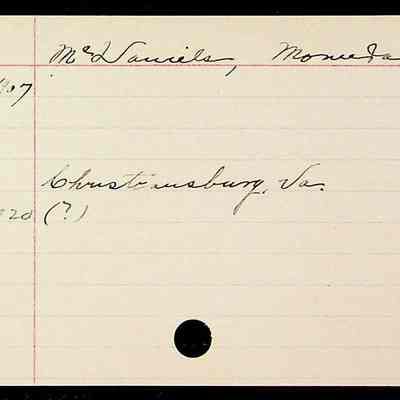 McDaniels, Moneta
907
Christiansburg, Va.
20 (?)